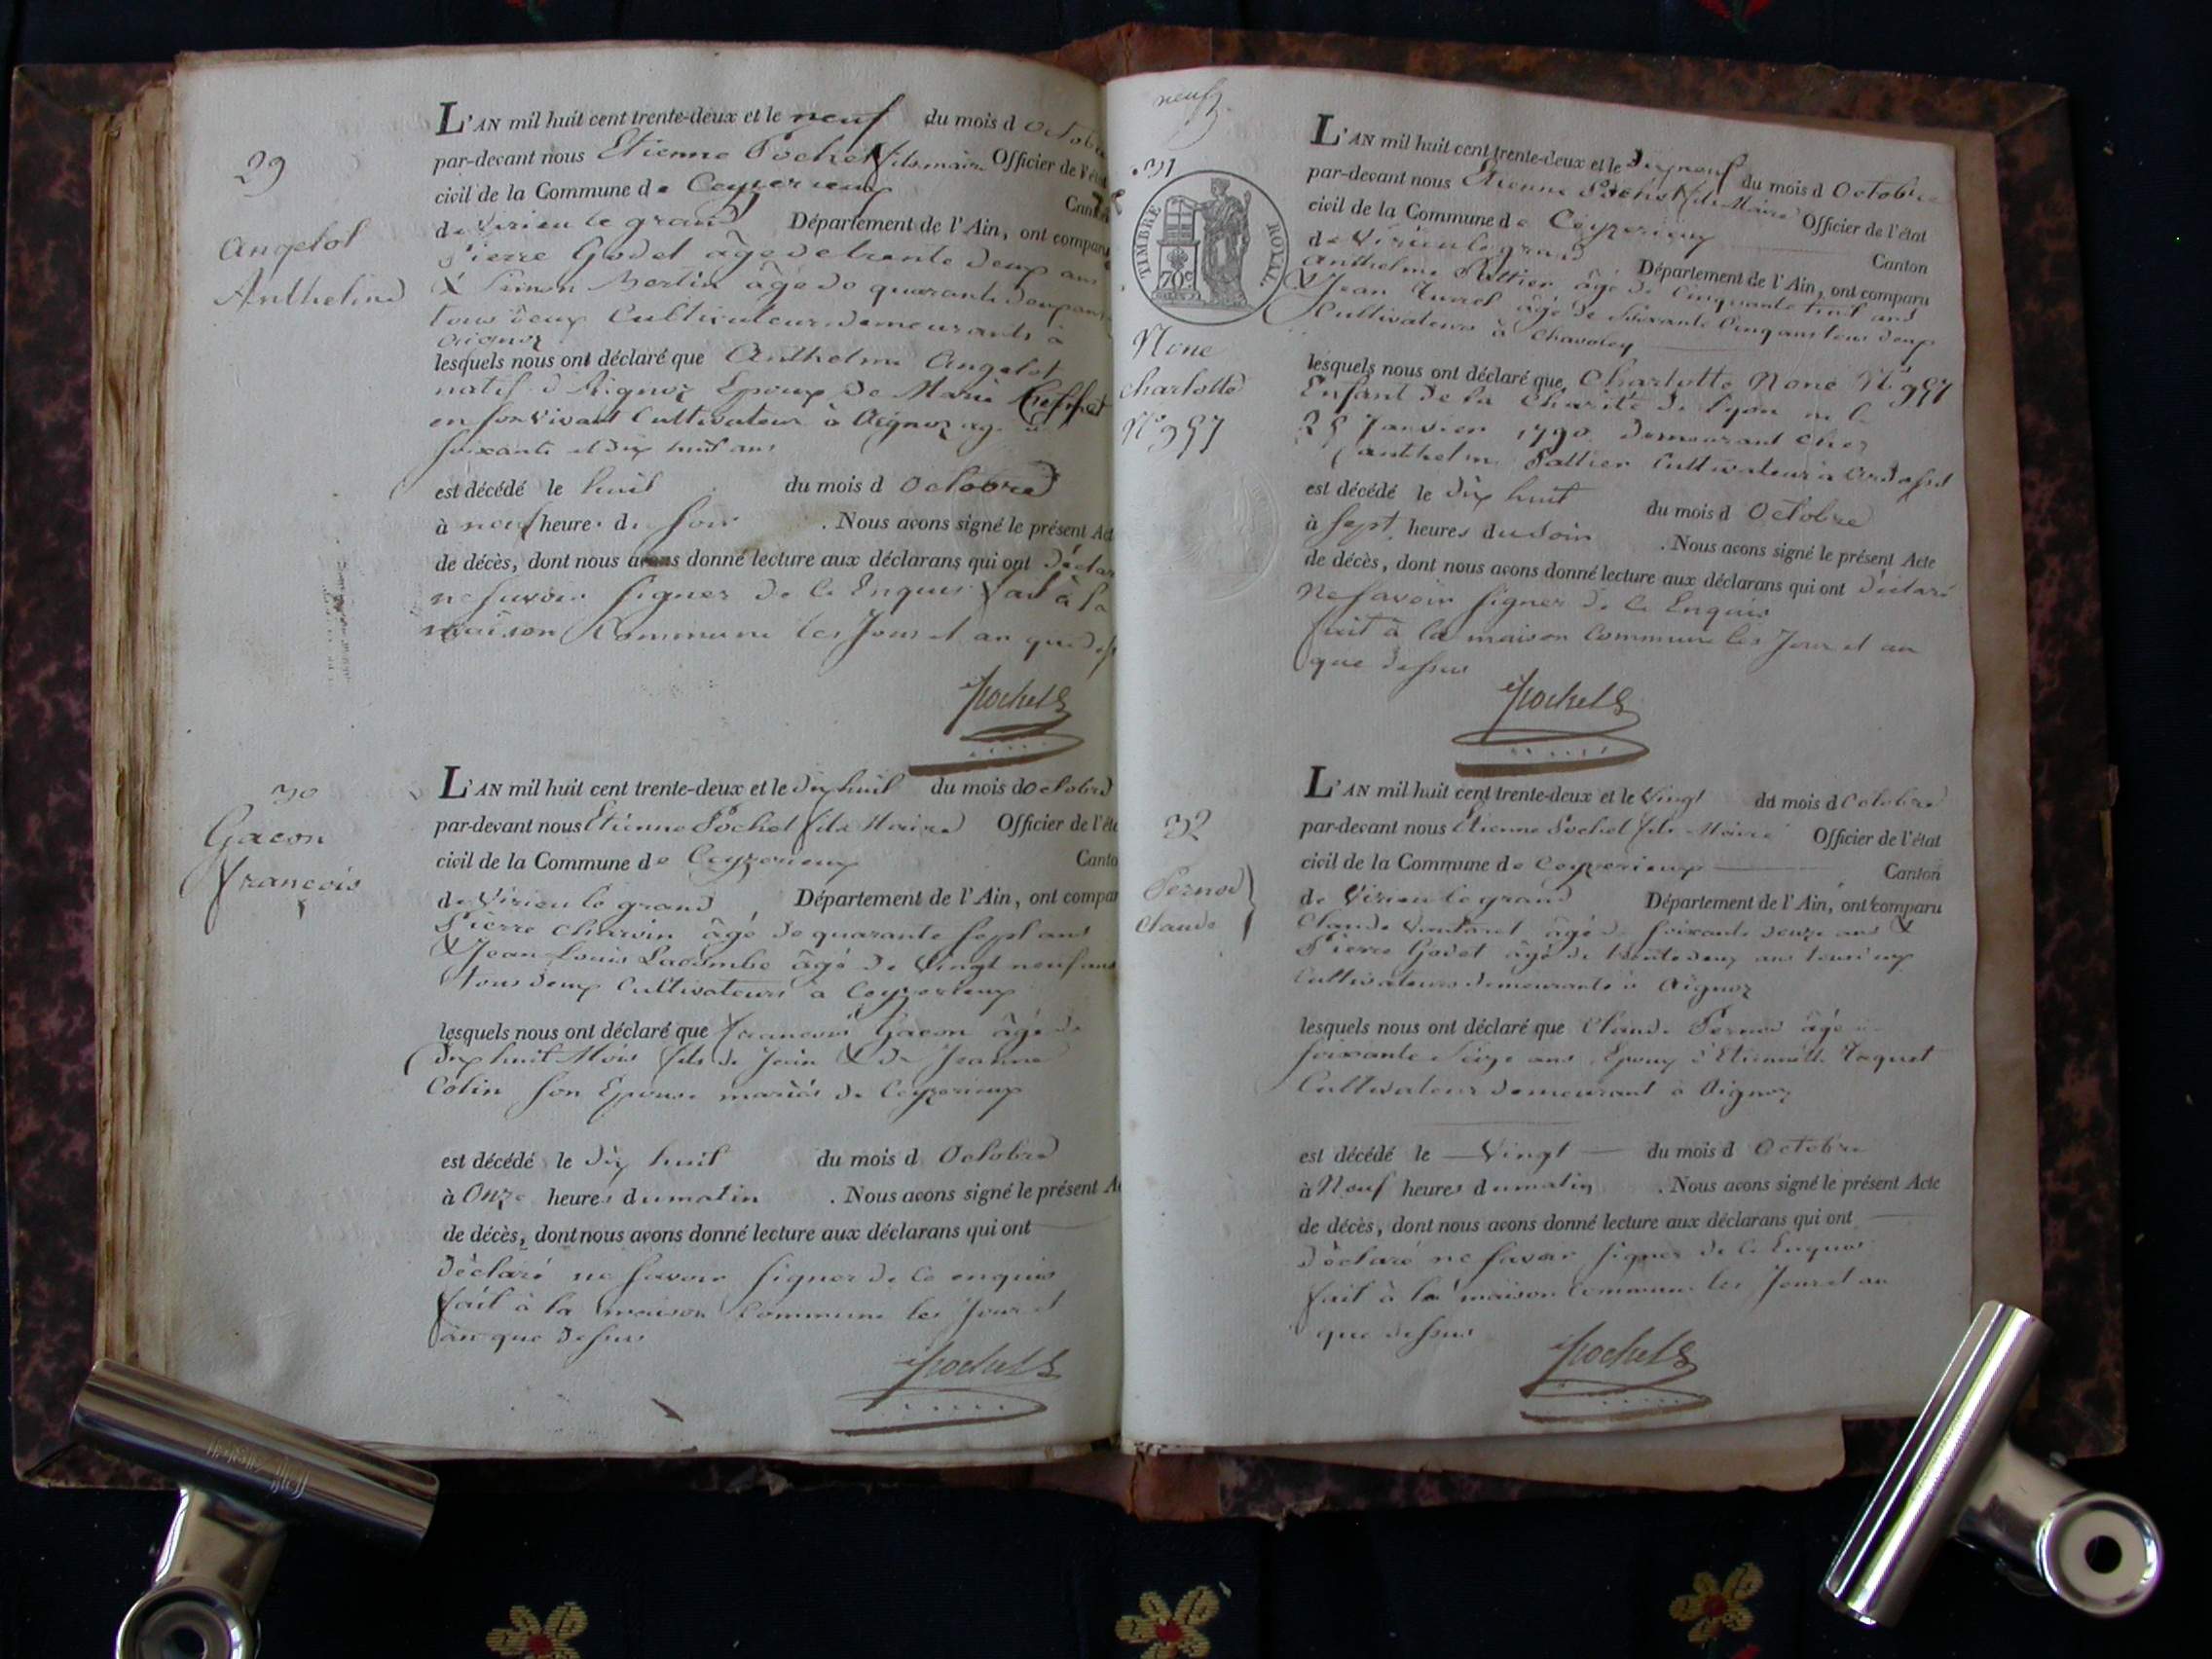 29
Angelot
Anthelme
L'AN mil huit cent trente-deux et le neuf du mois d octobre
par-devant nous Etienne Pochet fils maire Officier de l'état
civil de la Commune de Ceyzerieux Canton
de Virieu le grand Département de l'Ain, ont comparu
Pierre Godet âgé de trente deux ans
& Simon Berlin âgé de quarante deux ans
tous deux Cultivateurs demeurants à
Aignoz
lesquels nous ont déclaré que Anthelme Angelot
natif d'Aignoz Epoux de Marie
en son vivant Cultivateur à Aignoz agé de
soixante et dix huit ans
est décédé le huit du mois d Octobre
à neuf heures du soir . Nous avons signé le présent Acte
de décès, dont nous avons donné lecture aux déclarans qui ont déclaré
ne savoir signer de ce Enquis fait à la
maison Commune les Jour et an que dessus
Pochet
30
Gacon
François
L'AN mil huit cent trente-deux et le dix huit du mois d octobre
par-devant nous Etienne Pochet fils Maire Officier de l'état
civil de la Commune de Ceyzerieux Canton
de Virieu le grand Département de l'Ain, ont comparu
Pierre Charvin âgé de quarante sept ans
& Jean Louis Lacombe âgé de Vingt neuf ans
tous deux Cultivateurs à Ceyzerieux
lesquels nous ont déclaré que François Gacon âgé de
dix huit Mois fils de Jean & de Jeanne
Colin son Epouse mariés de Ceyzerieux
est décédé le dix huit du mois d Octobre
à Onze heures du matin . Nous avons signé le présent Acte
de décès, dont nous avons donné lecture aux déclarans qui ont
déclaré ne savoir signer de ce enquis
fait à la maison Commune les Jour et
an que dessus
Pochet
neuf
31
TIMBRE ROYAL
70c
None
charlotte
N° 957
L'AN mil huit cent trente-deux et le dix neuf du mois d Octobre
par-devant nous Etienne Pochet fils Maire Officier de l'état
civil de la Commune de Ceyzerieux
de Virieu le grand Canton
Département de l'Ain, ont comparu
Anthelme Pattier âgé de Cinquante trois ans
& Jean Turrel âgé de Soixante Cinq ans tous deux
Cultivateurs à Chavoley
lesquels nous ont déclaré que Charlotte None N° 957
Enfant de la Charité de Lyon né le
25 Janvier 1790 demeurant chez
anthelme Pattier Cultivateur à
est décédé le dix huit du mois d Octobre
à Sept heures du Soir . Nous avons signé le présent Acte
de décès, dont nous avons donné lecture aux déclarans qui ont déclaré
ne savoir signer de ce Enquis
fait à la maison Commune les Jour et an
que dessus
Pochet
32
Pernod
claude
L'AN mil huit cent trente-deux et le Vingt du mois d Octobre
par-devant nous Etienne Pochet fils Maire Officier de l'état
civil de la Commune de Ceyzerieux Canton
de Virieu le grand Département de l'Ain, ont comparu
Claude âgé de soixante douze ans &
Pierre Godet âgé de trente deux ans tous deux
Cultivateurs demeurants à Aignoz
lesquels nous ont déclaré que Claude Pernod âgé de
soixante Seize ans Epoux d'Etiennette
Cultivateur demeurant à Aignoz
est décédé le Vingt du mois d Octobre
à Neuf heures du matin . Nous avons signé le présent Acte
de décès, dont nous avons donné lecture aux déclarans qui ont
déclaré ne savoir signer de ce Enquis
fait à la maison Commune les Jour et an
que dessus
Pochet